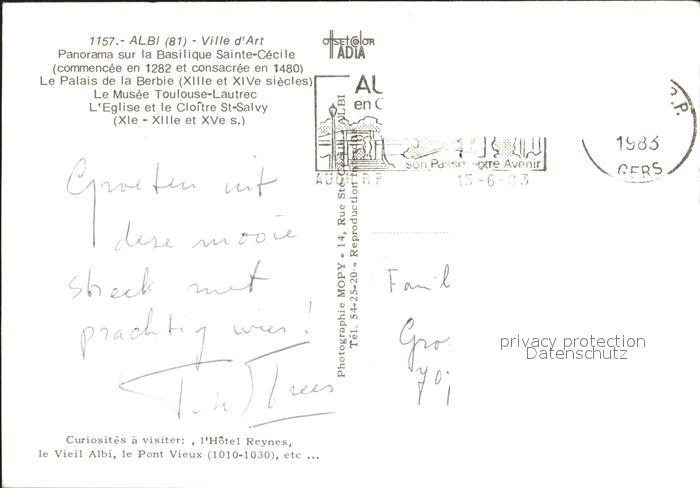 1157.- ALBI (81) - Ville d'Art
Panorama sur la Basilique Sainte-Cécile
(commencée en 1282 et consacrée en 1480)
Le Palais de la Berbie (XIIIe et XIVe siècles)
Le Musée Toulouse-Lautrec
L'Eglise et le Cloître St-Salvy
(XIe - XIIIe et XVe s.)
Groeten uit
deze mooie
streek met
prachtig weer!
Trees
Curiosités à visiter: , l'Hôtel Reynes,
le Vieil Albi, le Pont Vieux (1010-1030), etc ...
OffsetColor
IADIA
Photographie MOPY - 14, Rue Ste-Cécile ALBI
Tél. 54-25-20 - Reproduction
AU
en
son Passé notre Avenir
AUCH R.P
15-6-83
P.
1983
GERS
Famil
Gro
privacy protection
Datenschutz